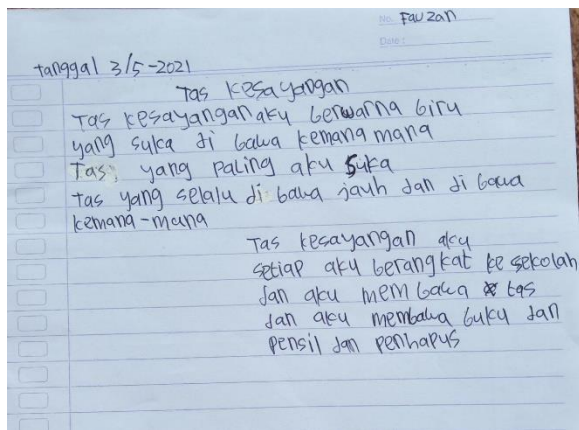 No. Fauzan
Date :
tanggal 3/5-2021
Tas kesayangan
Tas kesayangan aku berwarna biru
yang suka di bawa kemana mana
Tas, yang paling aku suka
tas yang selalu di bawa jauh dan di bawa
kemana-mana
Tas kesayangan aku
setiap aku berangkat ke sekolah
dan aku membawa tas
dan aku membawa buku dan
pensil dan penhapus